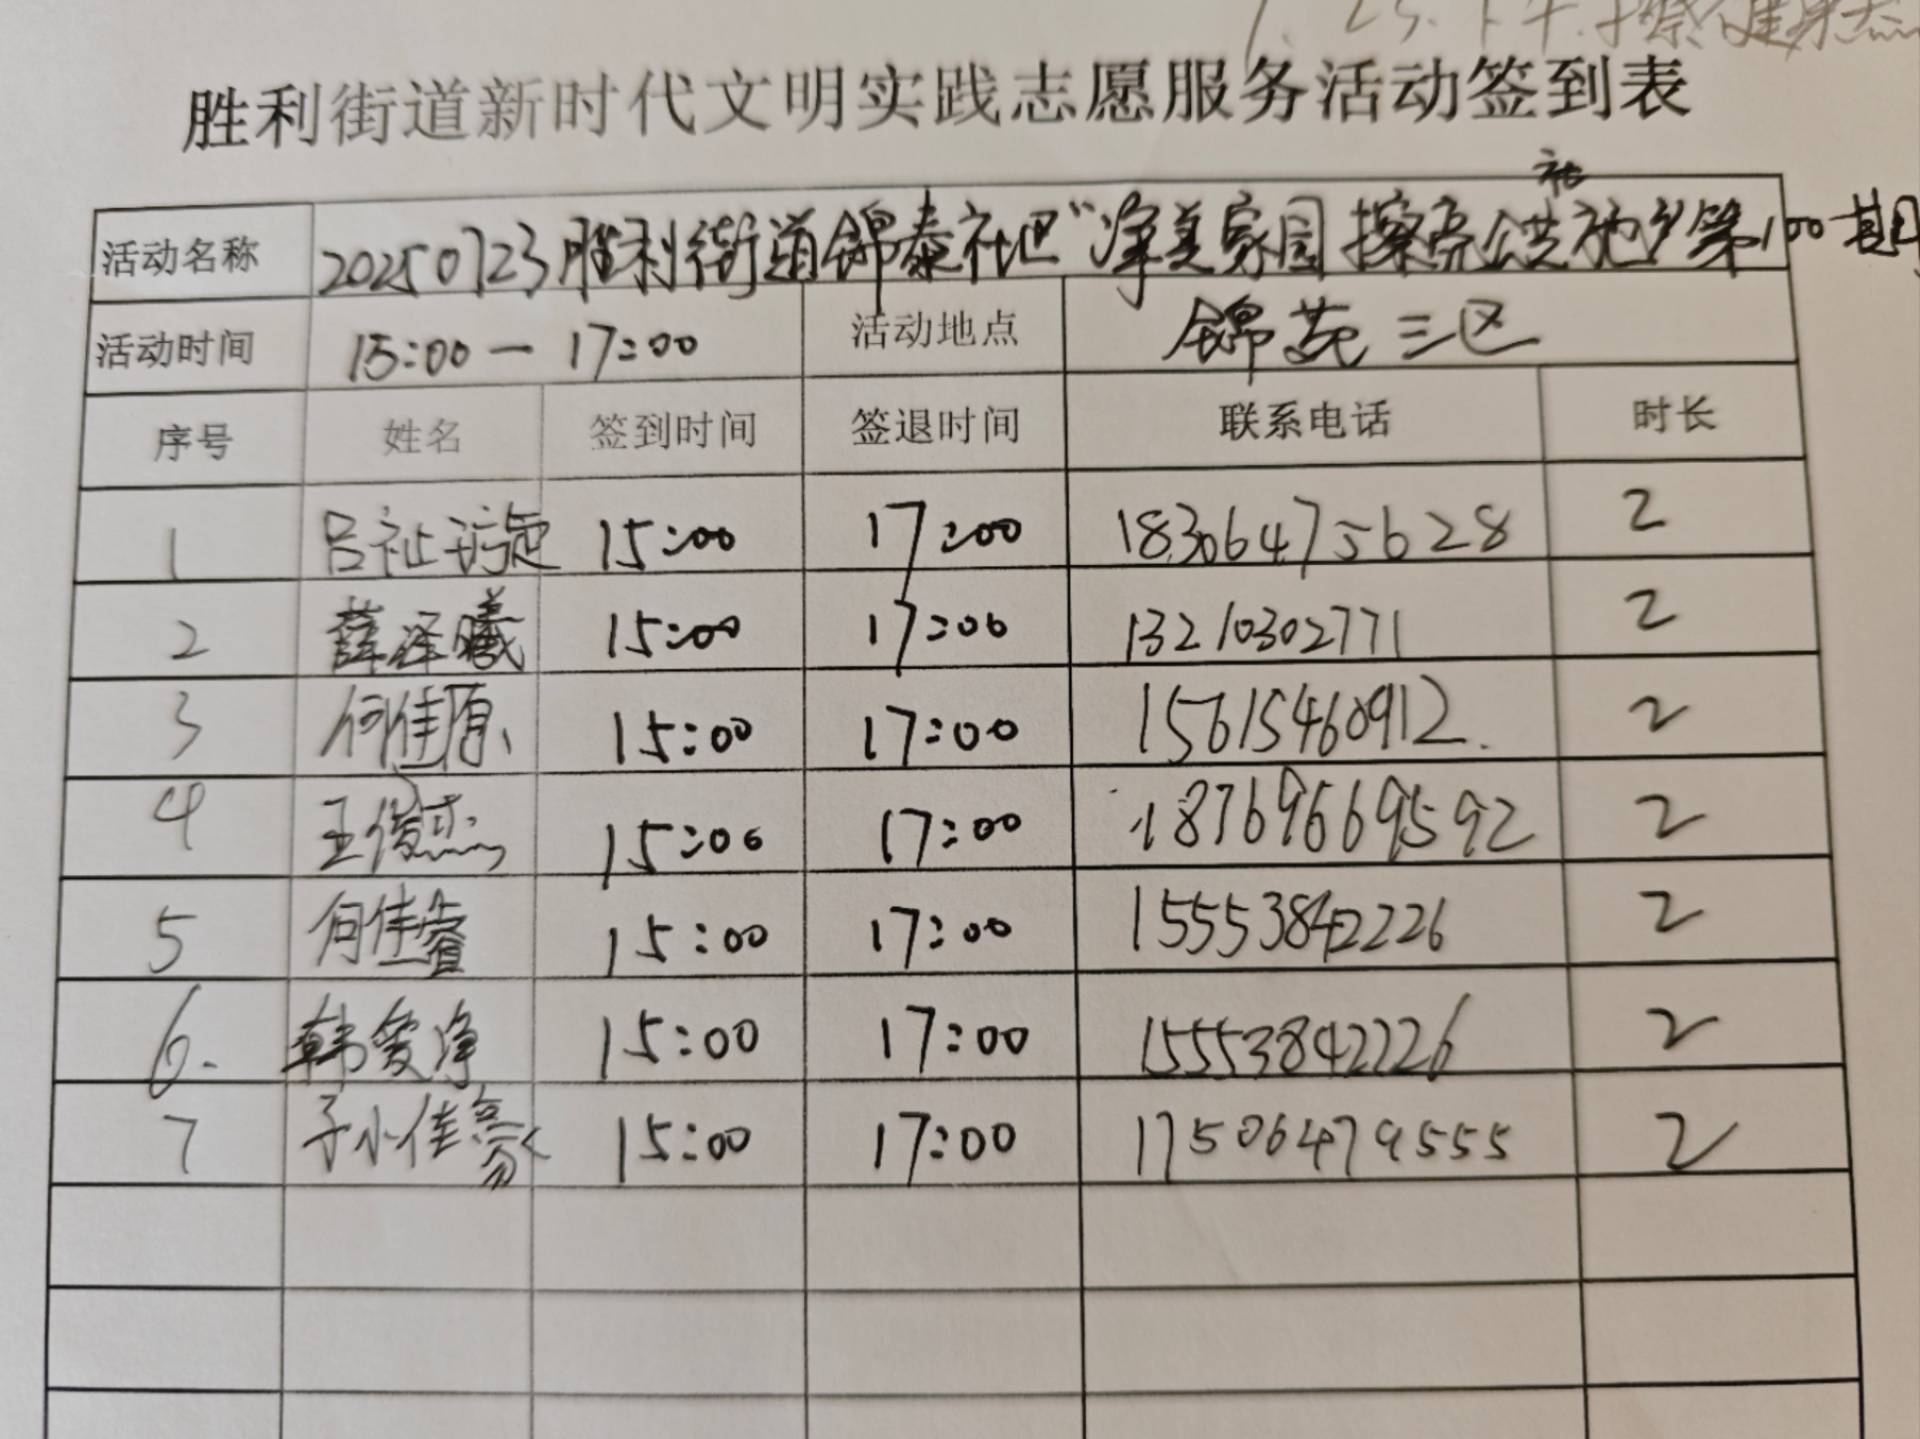 7.23.下午.擦健身器
胜利街道新时代文明实践志愿服务活动签到表
活动名称 20250723胜利街道锦泰社区“净美家园 擦亮公共社
活动时间 15:00—17:00 活动地点 锦苑三区
序号 姓名 签到时间 签退时间 联系电话 时长
1 吕祉 15:00 17:00 18306475628 2
2 薛泽曦 15:00 17:00 13210302771 2
3 何佳原 15:00 17:00 15615460912. 2
4 王俊杰 15:00 17:00 18769669592 2
5 何佳睿 15:00 17:00 15553842226 2
6. 韩爱净 15:00 17:00 15553842226 2
7 佳豪 15:00 17:00 17506479555 2